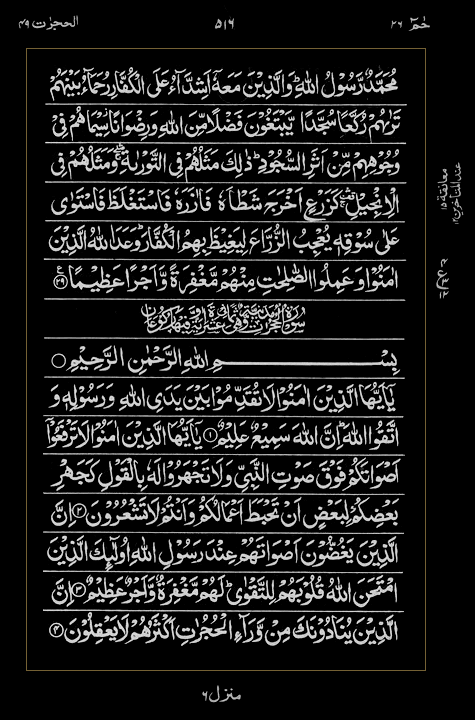 حٰمٓ ٢٦ ٥١٦ الحجرٰت ٤٩
مُحَمَّدٌ رَّسُوْلُ اللّٰهِؕ وَالَّذِيْنَ مَعَهٗۤ اَشِدَّآءُ عَلَى الْكُفَّارِ رُحَمَآءُ بَيْنَهُمْ
تَرٰىهُمْ رُكَّعًا سُجَّدًا يَّبْتَغُوْنَ فَضْلًا مِّنَ اللّٰهِ وَرِضْوَانًا سِيْمَاهُمْ فِيْ
وُجُوْهِهِمْ مِّنْ اَثَرِ السُّجُوْدِؕ ذٰلِكَ مَثَلُهُمْ فِي التَّوْرٰىةِ وَمَثَلُهُمْ فِي
الْاِنْجِيْلِ كَزَرْعٍ اَخْرَجَ شَطْـَٔهٗ فَاٰزَرَهٗ فَاسْتَغْلَظَ فَاسْتَوٰى
عَلٰى سُوْقِهٖ يُعْجِبُ الزُّرَّاعَ لِيَغِيْظَ بِهِمُ الْكُفَّارَؕ وَعَدَ اللّٰهُ الَّذِيْنَ
اٰمَنُوْا وَعَمِلُوا الصّٰلِحٰتِ مِنْهُمْ مَّغْفِرَةً وَّاَجْرًا عَظِيْمًا ﴿٢٩﴾
بِسْمِ اللّٰهِ الرَّحْمٰنِ الرَّحِيْمِ ○
يٰۤاَيُّهَا الَّذِيْنَ اٰمَنُوْا لَا تُقَدِّمُوْا بَيْنَ يَدَيِ اللّٰهِ وَرَسُوْلِهٖ وَ
اتَّقُوا اللّٰهَؕ اِنَّ اللّٰهَ سَمِيْعٌ عَلِيْمٌ ﴿١﴾ يٰۤاَيُّهَا الَّذِيْنَ اٰمَنُوْا لَا تَرْفَعُوْۤا
اَصْوَاتَكُمْ فَوْقَ صَوْتِ النَّبِيِّ وَلَا تَجْهَرُوْا لَهٗ بِالْقَوْلِ كَجَهْرِ
بَعْضِكُمْ لِبَعْضٍ اَنْ تَحْبَطَ اَعْمَالُكُمْ وَاَنْتُمْ لَا تَشْعُرُوْنَ ﴿٢﴾ اِنَّ
الَّذِيْنَ يَغُضُّوْنَ اَصْوَاتَهُمْ عِنْدَ رَسُوْلِ اللّٰهِ اُولٰٓىِٕكَ الَّذِيْنَ
امْتَحَنَ اللّٰهُ قُلُوْبَهُمْ لِلتَّقْوٰىؕ لَهُمْ مَّغْفِرَةٌ وَّاَجْرٌ عَظِيْمٌ ﴿٣﴾ اِنَّ
الَّذِيْنَ يُنَادُوْنَكَ مِنْ وَّرَآءِ الْحُجُرٰتِ اَكْثَرُهُمْ لَا يَعْقِلُوْنَ ﴿٤﴾
معانقة ١٥
عند المتاخرين ١٢
منزل ٦